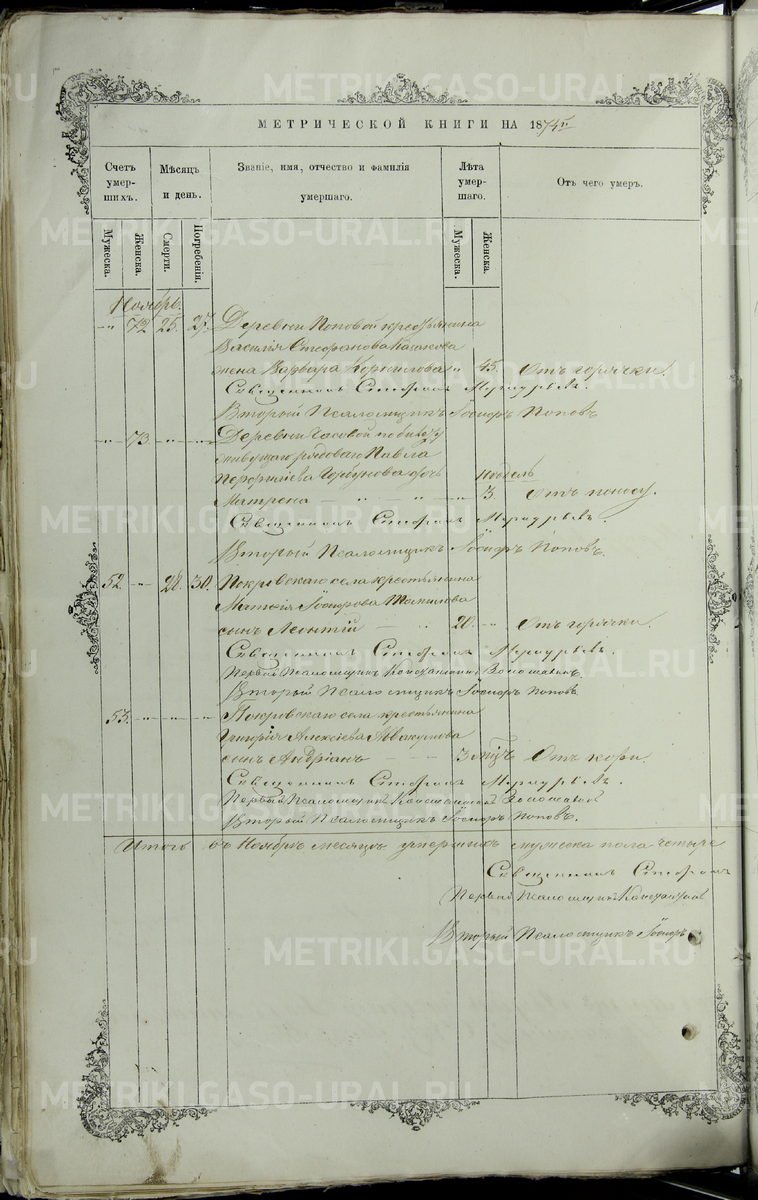 МЕТРИЧЕСКОЙ КНИГИ НА 1874й
Счетъ умер- шихъ.
Мѣсяцъ и день.
Званіе, имя, отчество и фамилія умершаго.
Лѣта умер- шаго.
Отъ чего умеръ.
Мужеска.
Женска.
Смерти.
Погребенія.
Мужеска.
Женска.
Ноябрь.
" 72. 25. 27. Деревни Поповой крестьянина
Василія Стефанова Казакова
жена Варвара Корнилова " 45. Отъ горячки.
Священникъ Стефанъ
Вторый Псаломщикъ Іосифъ Поповъ
" 73. " " Деревни Часовой по билету
живущаго рядоваго Павла
Горбунова дочь недель
Матрена " " 3 Отъ поносу.
Священникъ Стефанъ
Вторый Псаломщикъ Іосифъ Поповъ.
52. " 28. 30. Покровскаго села крестьянина
сынъ Леонтій " 20. " Отъ горячки.
Священникъ Стефанъ
Первый Псаломщикъ Константинъ
Вторый Псаломщикъ Іосифъ Поповъ
53. " " " Покровскаго села крестьянина
Григорія Алексіева Аввакумова
сынъ Андріанъ 3 мцъ Отъ кори.
Священникъ Стефанъ
Первый Псаломщикъ Константинъ
Вторый Псаломщикъ Іосифъ Поповъ.
Итого въ Ноябрѣ месяцѣ умершихъ мужеска пола четыре
Священникъ Стефанъ
Первый Псаломщикъ Константинъ
Вторый Псаломщикъ Іосифъ
METRIKI.GASO-URAL.RU